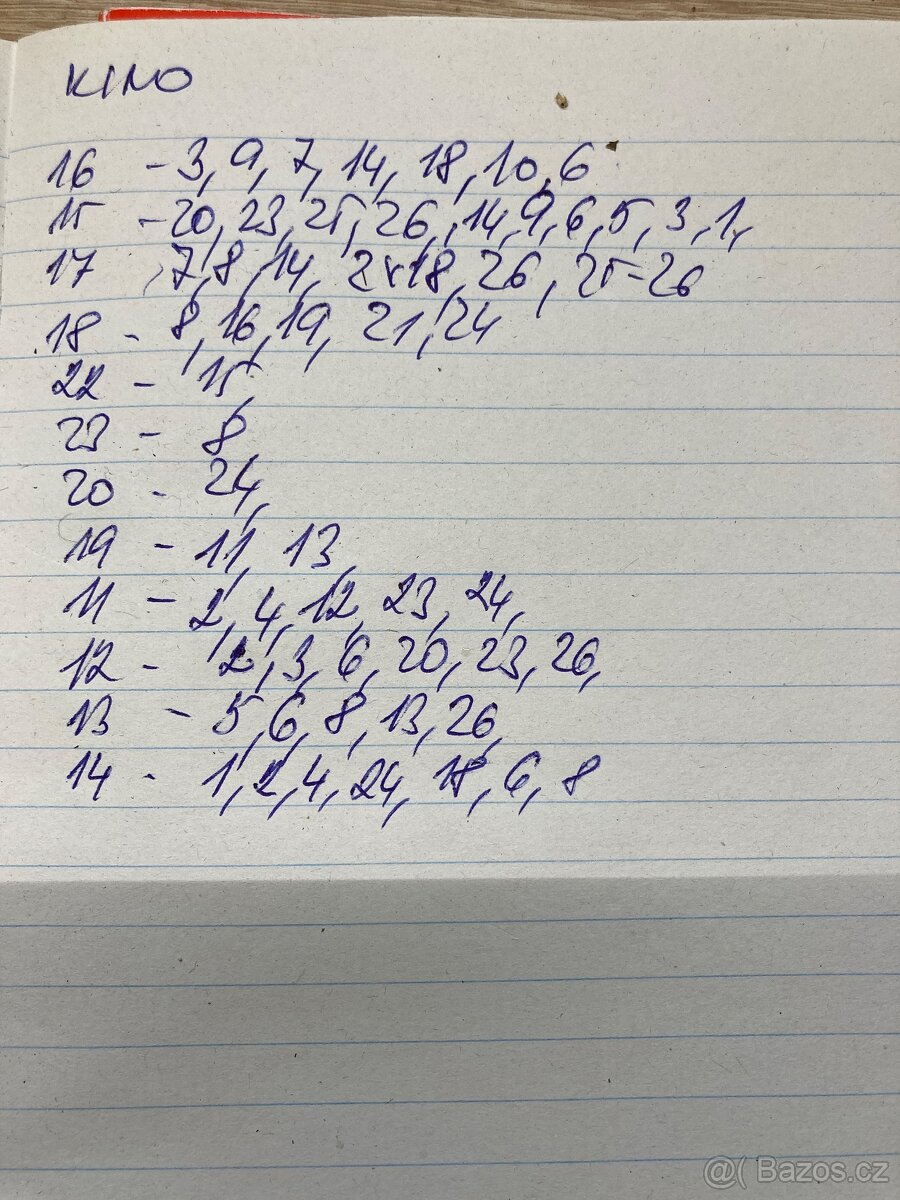 KINO
16 - 3, 9, 7, 14, 18, 10, 6
15 - 20, 23, 25, 26, 14, 9, 6, 5, 3, 1,
17 7, 8, 14, 18, 26, 25-26
18 - 8, 16, 19, 21, 24
22 - 15,
23 - 8
20 - 24,
19 - 11, 13,
11 - 2, 4, 12, 23, 24,
12 - 2, 3, 6, 20, 23, 26,
13 - 5, 6, 8, 13, 26,
14 - 1, 2, 4, 24, 18, 6, 8
@( Bazos.cz